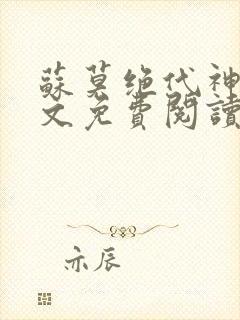 蘇莫绝代神
文免費閱讀
亦辰